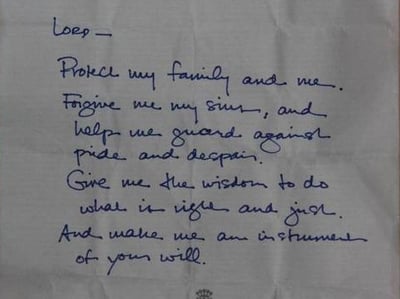 LORD —
Protect my family and me.
Forgive me my sins, and
help me guard against
pride and despair.
Give me the wisdom to do
what is right and just.
And make me an instrument
of your will.